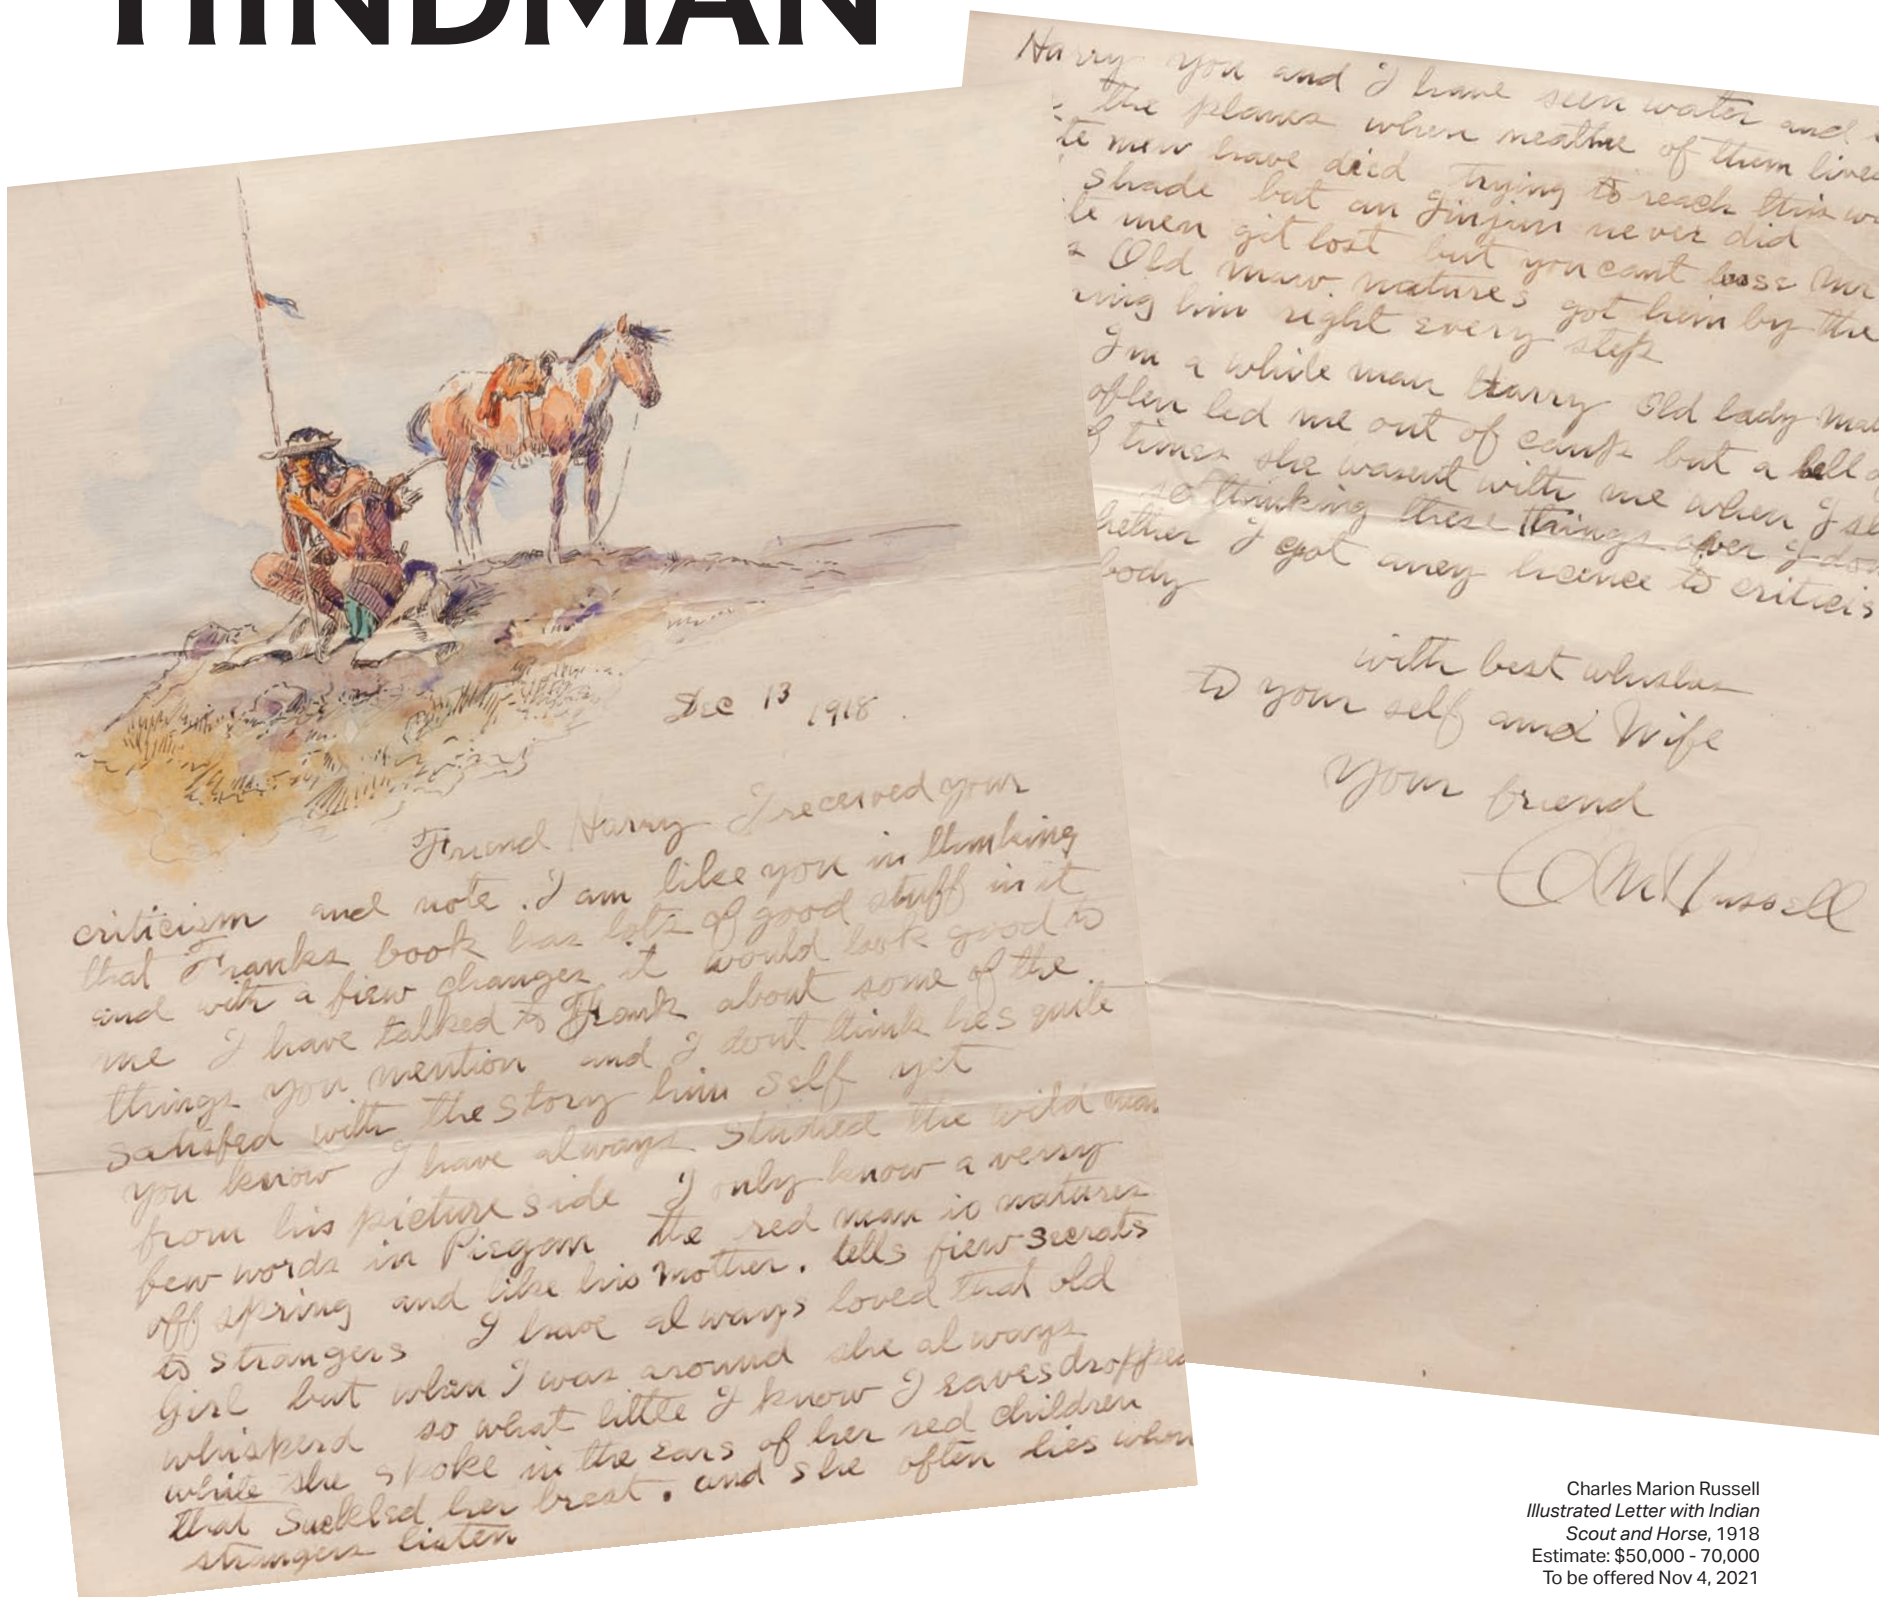 HINDMAN
Dec 13 1918.
Friend Harry I received your
criticism and note. I am like you in thinking
that Franks book has lots of good stuff in it
and with a fiew changes it would look good to
me I have talked to Frank about some of the
things you mention and I dont think hes quite
satisfed with the story him self yet
you know I have always studied the wild man
from his picture side I only know a verry
few words in Piegan the red man is natures
off spring and like his mother. tells fiew secrats
to strangers I have always loved that old
Girl but when I was around she always
whisperd so what little I know I eavesdropped
while she spoke in the ears of her red children
that Suckled her brest. and she often lies when
strangers listen
Harry you and I have seen water and
the planes when neathe of them lived
te men have died trying to reach this
shade but an Jinjin never did
te men git lost but you cant loose Mr
Old maw natures got him by the
ing him right every step
Im a white man Harry Old lady
often led me out of camp but a hell
times she wasent with me when I
so thinking these things over I
hether I got aney licence to criticis
body
with best whishes
to your self and Wife
your friend
CM Russell
Charles Marion Russell
Illustrated Letter with Indian
Scout and Horse, 1918
Estimate: $50,000 - 70,000
To be offered Nov 4, 2021